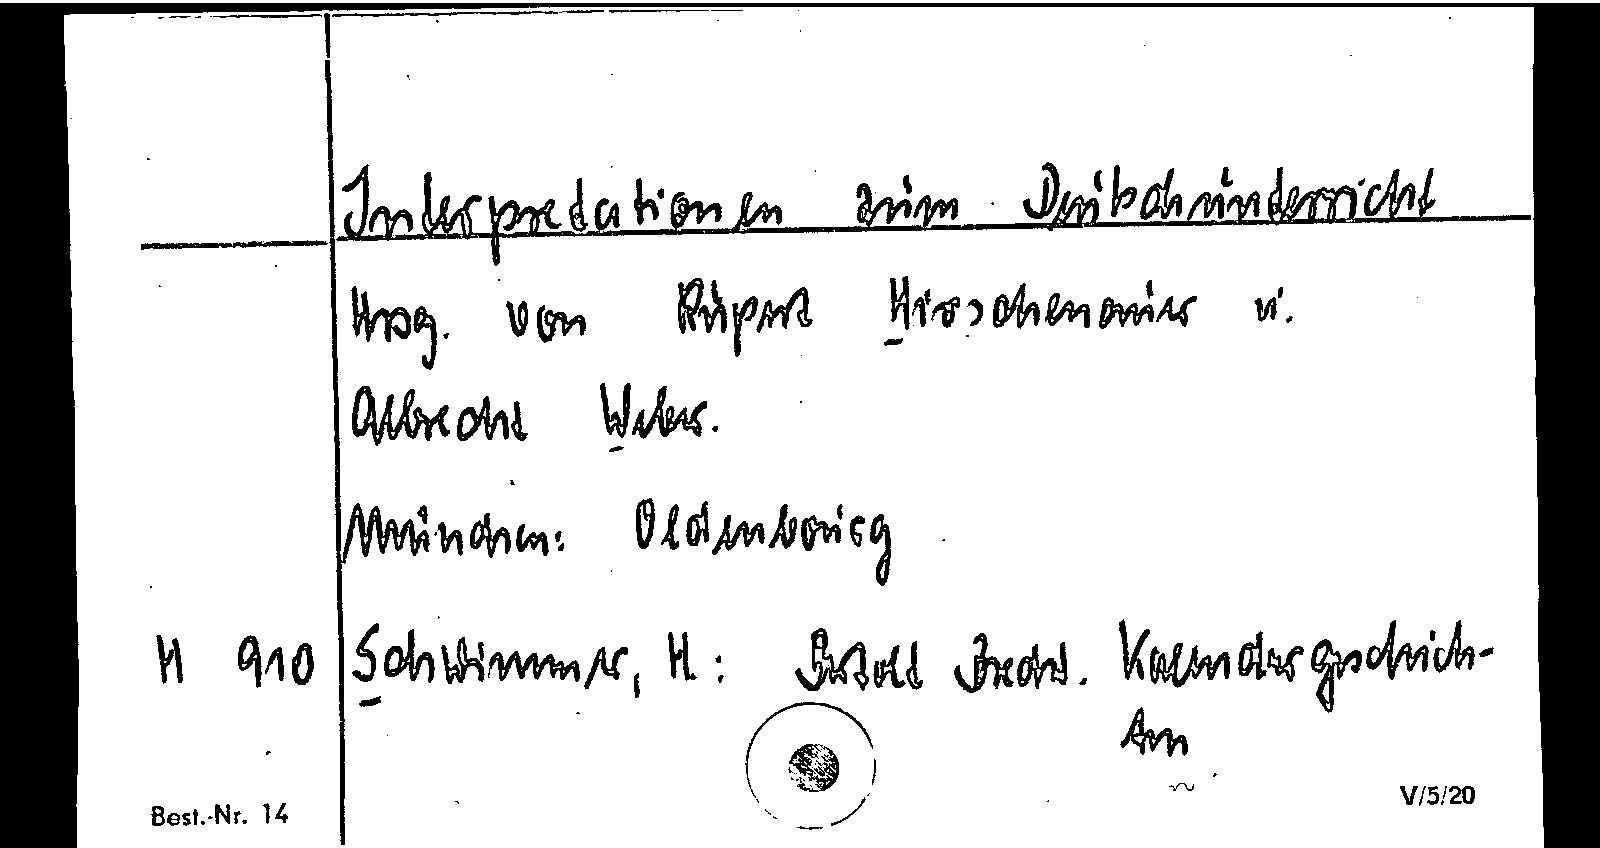 Interpretationen zum Deutschunterricht
Hrsg. von Rupert Hirschenauer u.
Albrecht Weber.
München: Oldenbourg
H 910 Schwimmer, H.: Bertolt Brecht. Kalendergeschich-
ten
Best.-Nr. 14 V/5/20